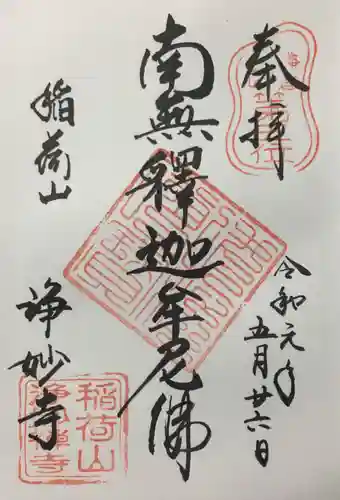 奉拝
令和元年
五月廿六日
南無釋迦牟尼佛
稲荷山
浄妙寺
稲荷山
浄妙禅寺